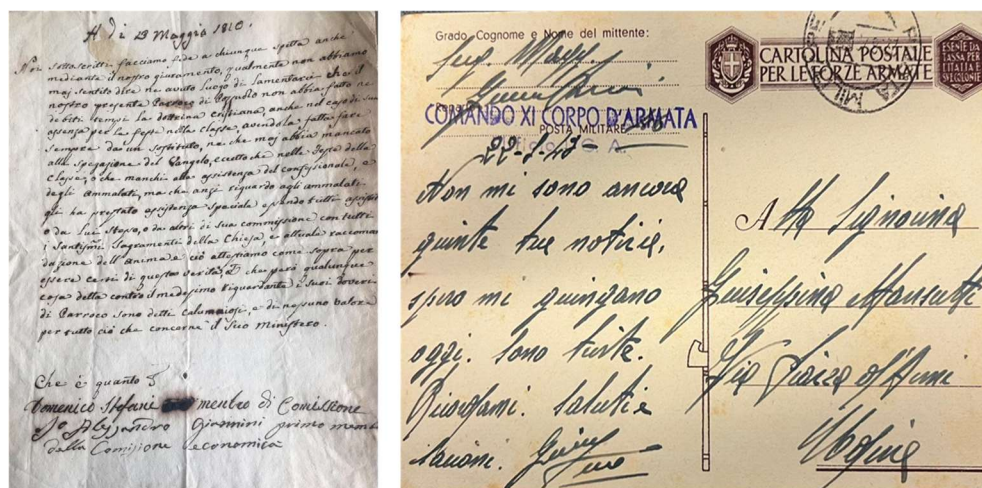 A di 23 Maggio 1810.
Noi sottoscritti facciamo fede a chiunque spetta anche
mediante il nostro giuramento, qualmente non abbiamo
maj sentito dire ne avuto luogo di lamentarci che il
nostro presente Parroco di non abbia fatto ne
debiti tempi la dottrina cristiana, anche nel caso di sua
assenza per le feste nella classe, avendola fatta fare
sempre da un sostituto, ne che maj abbia mancato
alla spegazione del Vangelo, eccetto che nelle Feste della
Classe, o che manchi alla assistenza del confessionale, o
degli ammalati, ma che anzi riguardo agli ammalati
gli ha prestato assistenza speciale essendo tutti assistiti
o da lui stesso, o da altri di sua commissione con tutti
i Santissmi Sagramenti della Chiesa, e attuale raccoman
dazione dell'Anima e ciò attestiamo come sopra per
essere certi di questa verità che però qualunque
cosa detta contro il medesimo riguardante i suoi doveri
di Parroco sono detti calunniosi, e di nessuno valore
per tutto ciò che concerne il suo Ministero.
Che è quanto
Domenico Stefani membro di Comissione
Io Alessandro Giannini primo mem
della Comisione economica
Grado, Cognome e Nome del mittente:
COMANDO XI CORPO D'ARMATA
POSTA MILITARE
Non mi sono ancora
giunte tue notizie,
spero mi giungano
oggi. Sono triste.
Ricordami. Saluti e
bacioni.
CARTOLINA POSTALE
PER LE FORZE ARMATE
ESENTE DA
TASSA PER
L'ITALIA E
SUE COLONIE
Alla Signorina
Giuseppina
Via Piazza d'Armi
Udine